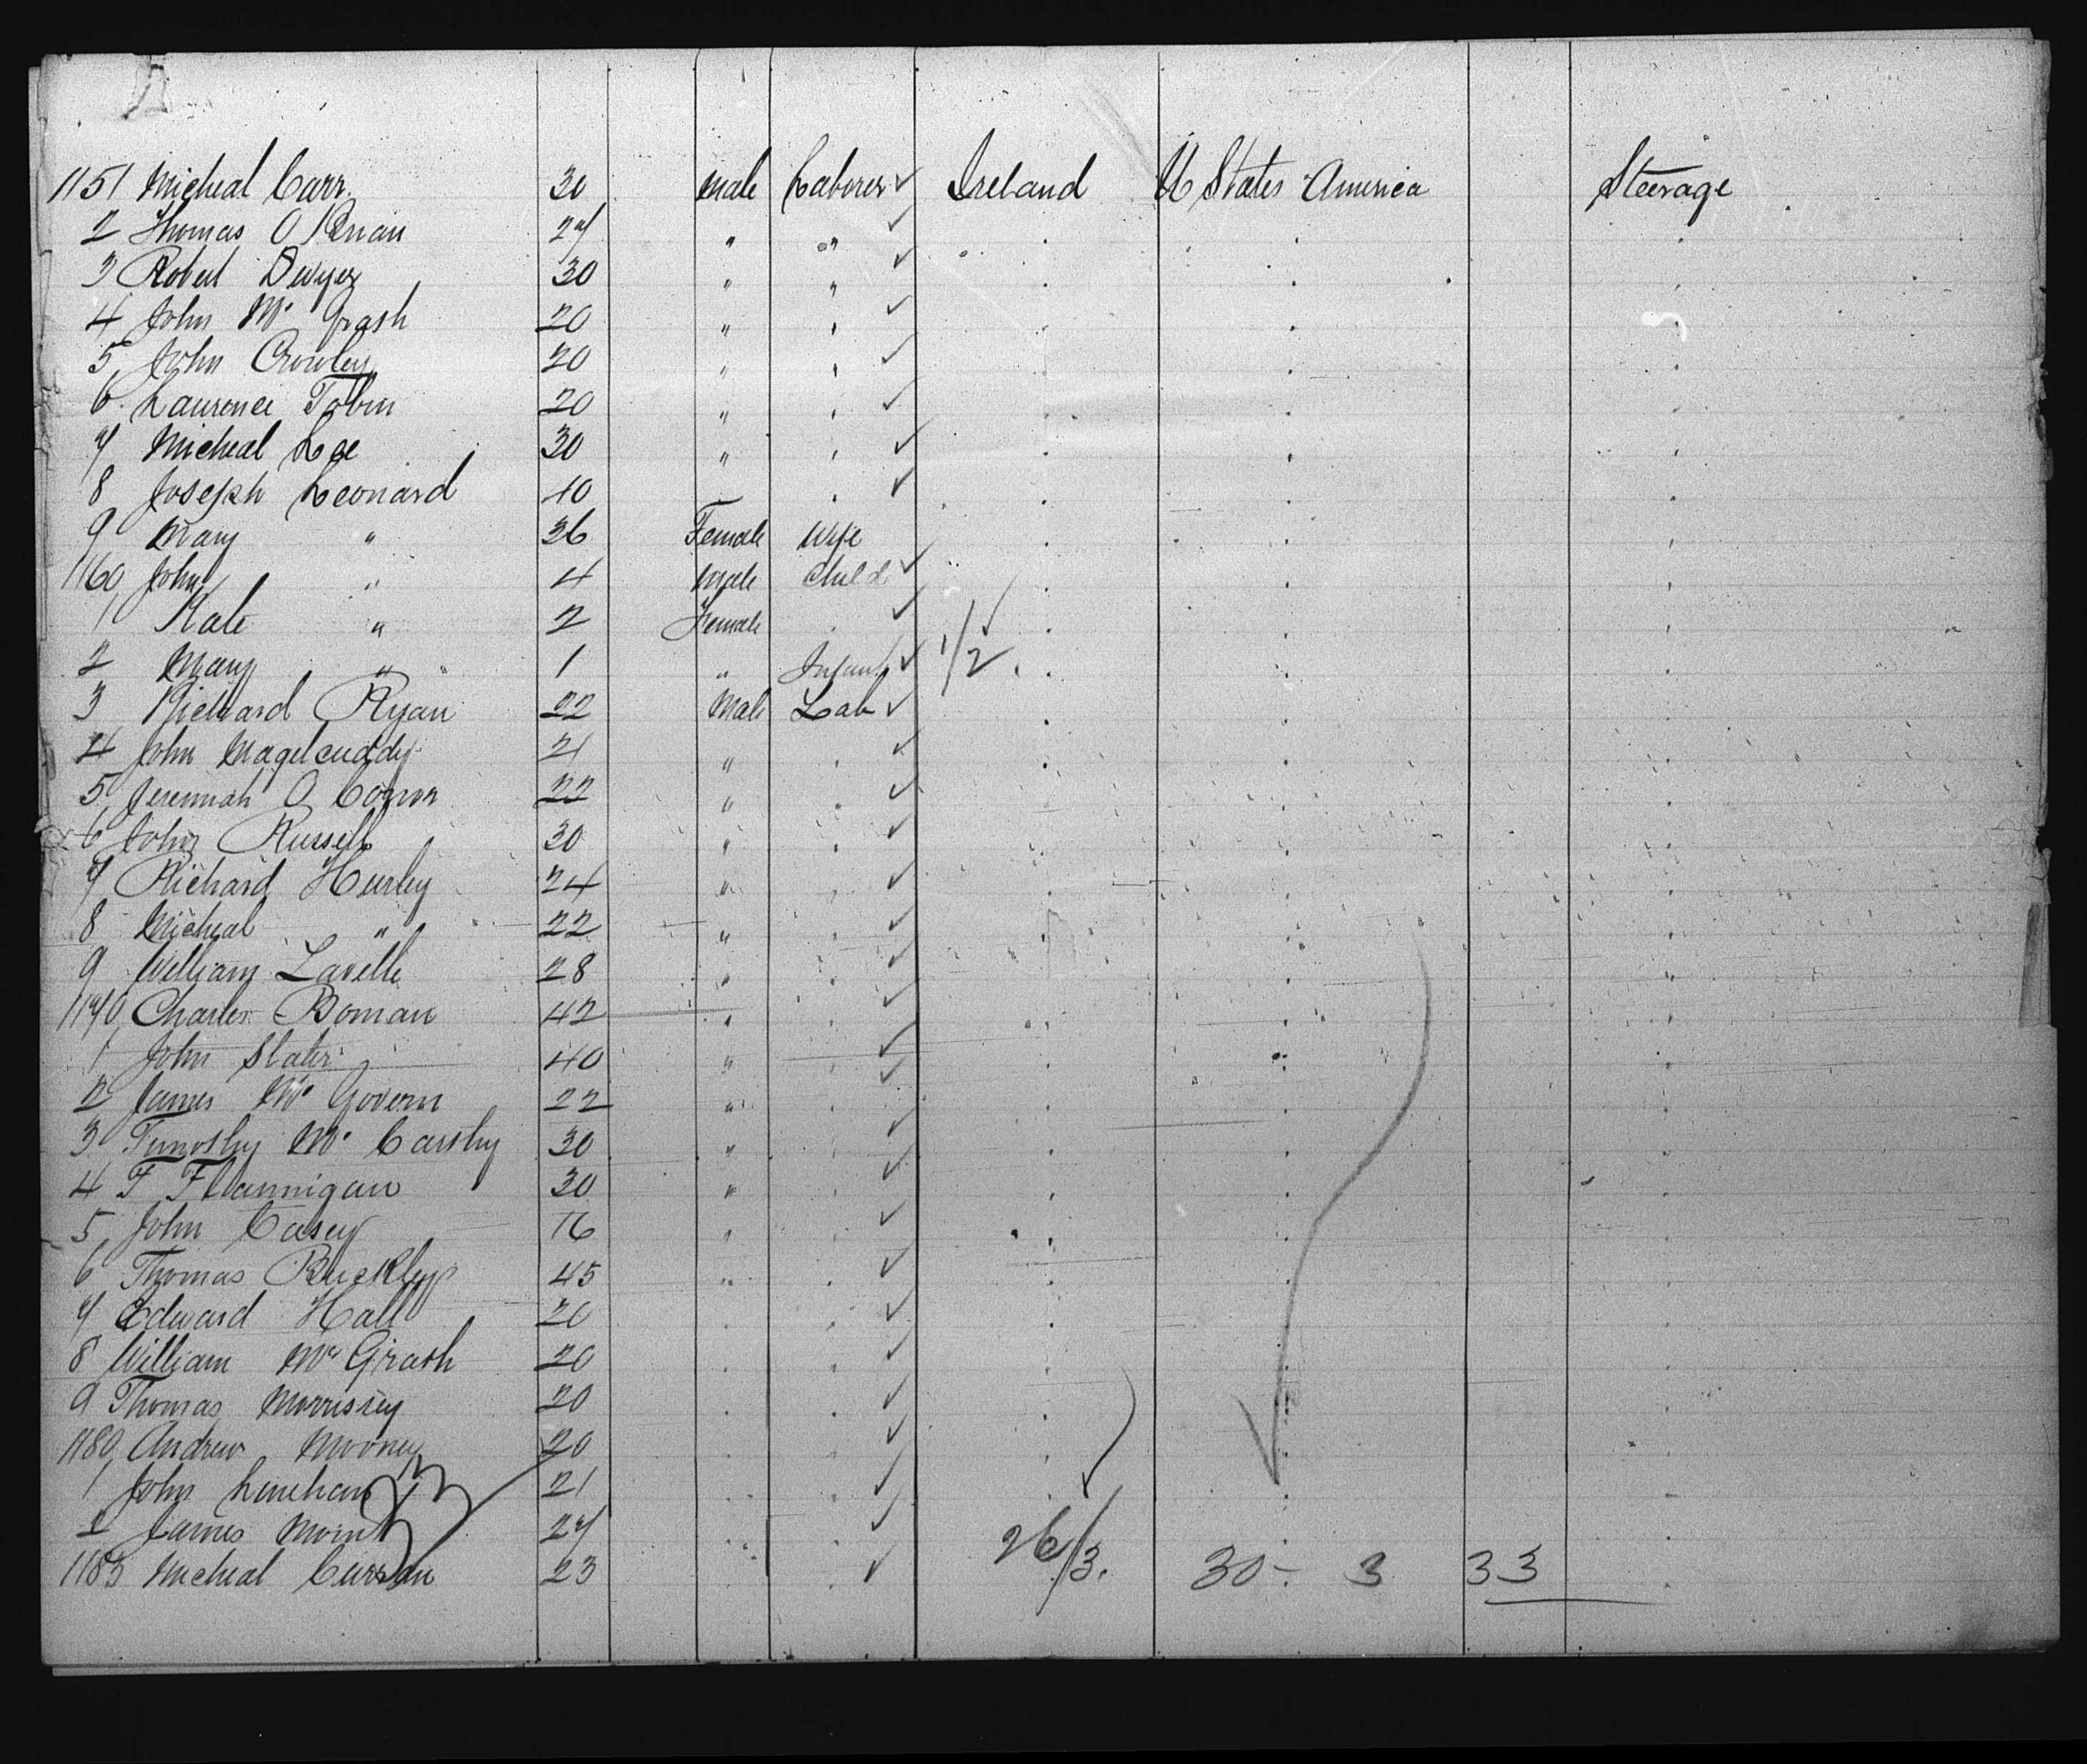 1151 Micheal Carr 30 Male Laborer Ireland U States America Steerage
2 Thomas O Brian 27 " "
3 Robert Dwyer 30 " "
4 John Mc Grath 20 "
5 John Crowley 20 "
6 Laurence Tobin 20 "
7 Micheal Lee 30 "
8 Joseph Leonard 40
9 Mary " 36 Female Wife
1160 John " 4 Male Child
1 Kate " 2 Female
2 Mary " 1 " Infant 1/2
3 Richard Ryan 22 Male Lab
4 John Magelcuddy 21 "
5 Jeremiah O Conor 22 "
6 John Russell 30 "
7 Richard Hurley 24 "
8 Micheal " 22 "
9 William Lavelle 28 "
1170 Charles Boman 42 "
1 John Slater 40 "
2 James Mc Govern 22 "
3 Timothy Mc Carthy 30 "
4 F Flannigan 30 "
5 John Casey 16 "
6 Thomas Buckley 45 "
7 Edward Hall 20
8 William Mc Grath 20
9 Thomas Morrissey 20
1180 Andrew Mooney 20
1 John Lenehan 21
2 James 27
1183 Micheal Curran 23 26/3. 30 - 3 33
33